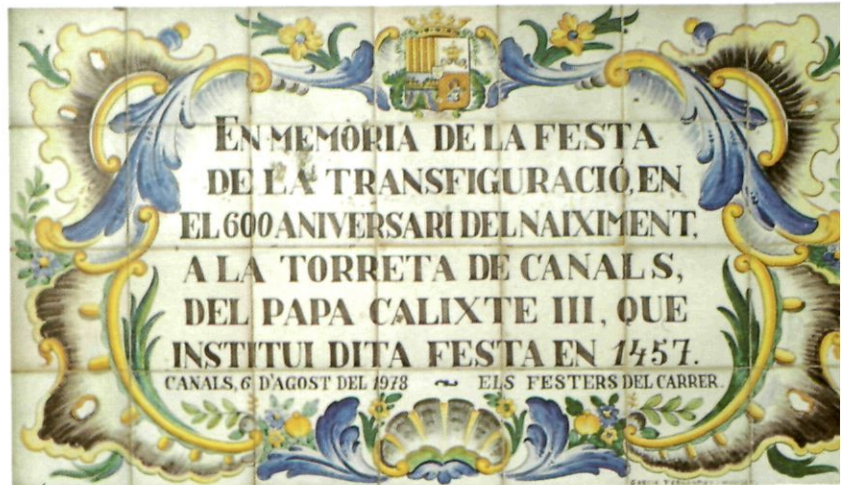 EN MEMÒRIA DE LA FESTA
DE LA TRANSFIGURACIÓ, EN
EL 600 ANIVERSARI DEL NAIXIMENT,
A LA TORRETA DE CANALS,
DEL PAPA CALIXTE III, QUE
INSTITUI DITA FESTA EN 1457.
CANALS, 6 D'AGOST DEL 1978 ~ ELS FESTERS DEL CARRER.